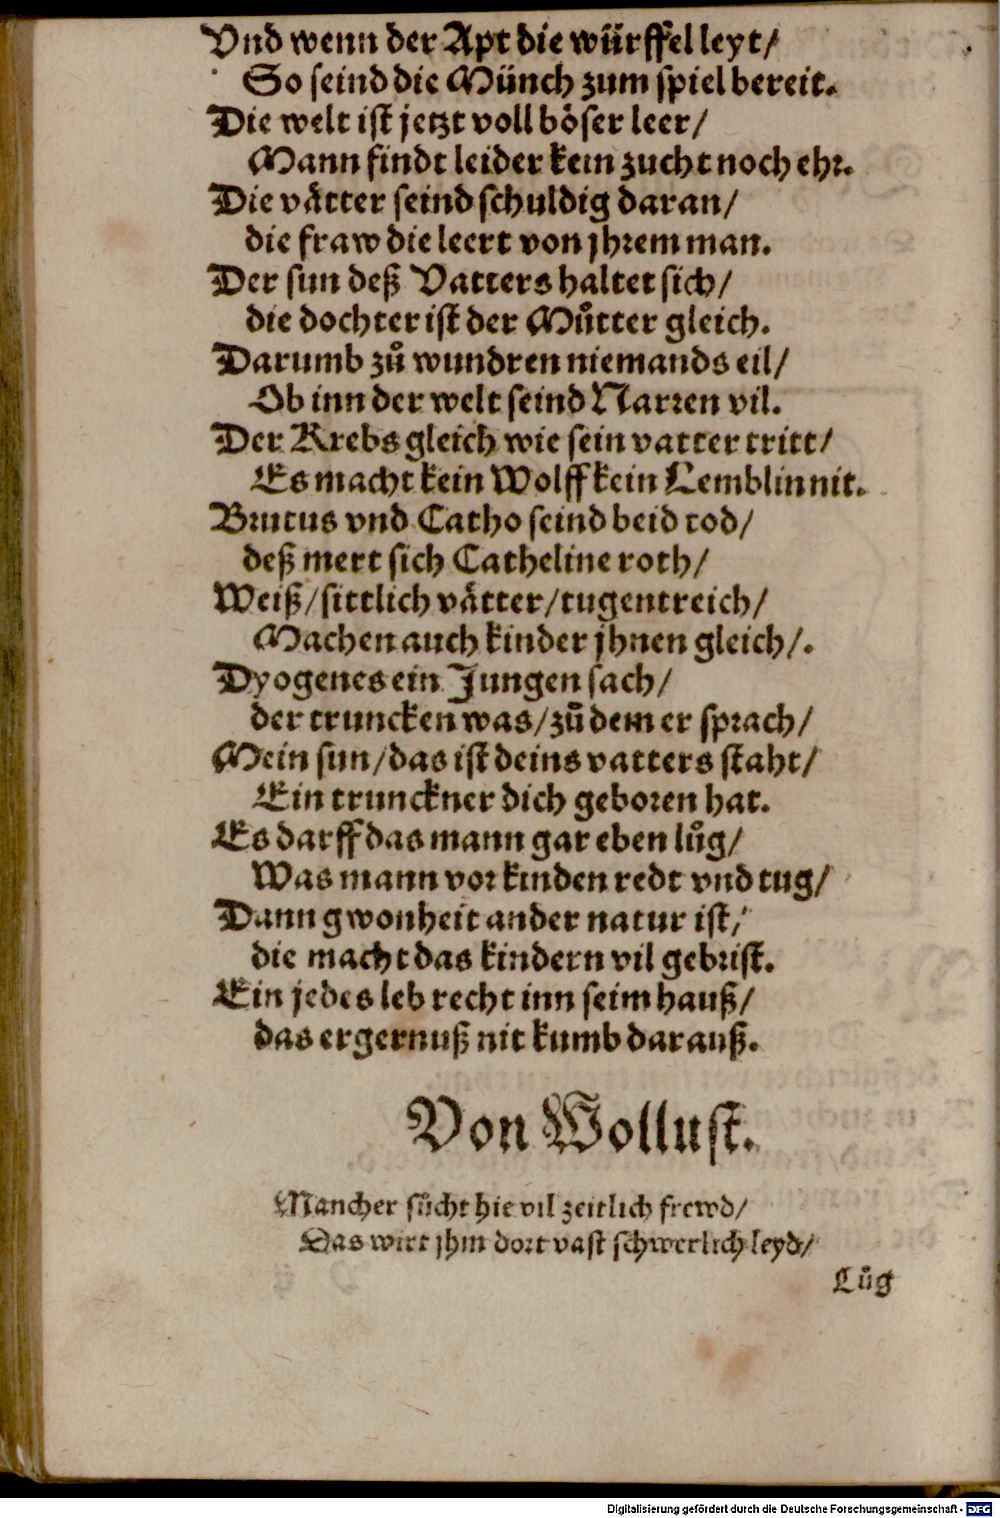 Vnd wenn der Apt die würffel leyt/
So seind die Münch zum spiel bereit.
Die welt ist jetzt voll böser leer/
Mann findt leider kein zucht noch ehr.
Die vätter seind schuldig daran/
die fraw die leert von jhrem man.
Der sun deß Vatters haltet sich/
die dochter ist der Muͤtter gleich.
Darumb zuͦ wundren niemands eil/
Ob inn der welt seind Narren vil.
Der Krebs gleich wie sein vatter tritt/
Es macht kein Wolff kein Lemblin nit.
Brutus vnd Catho seind beid tod/
deß mert sich Catheline roth/
Weiß/sittlich vätter/tugentreich/
Machen auch kinder jhnen gleich/.
Dyogenes ein Jungen sach/
der truncken was/zuͦ dem er sprach/
Mein sun/das ist deins vatters staht/
Ein trunckner dich geboren hat.
Es darff das mann gar eben luͦg/
Was mann vor kinden redt vnd tug/
Dann gwonheit ander natur ist/
die macht das kindern vil gebrist.
Ein jedes leb recht inn seim hauß/
das ergernuß nit kumb darauß.
Von Wollust.
Mancher suͤcht hie vil zeitlich frewd/
Das wirt jhm dort vast schwerlich leyd/
Luͦg
Digitalisierung gefördert durch die Deutsche Forschungsgemeinschaft - DFG